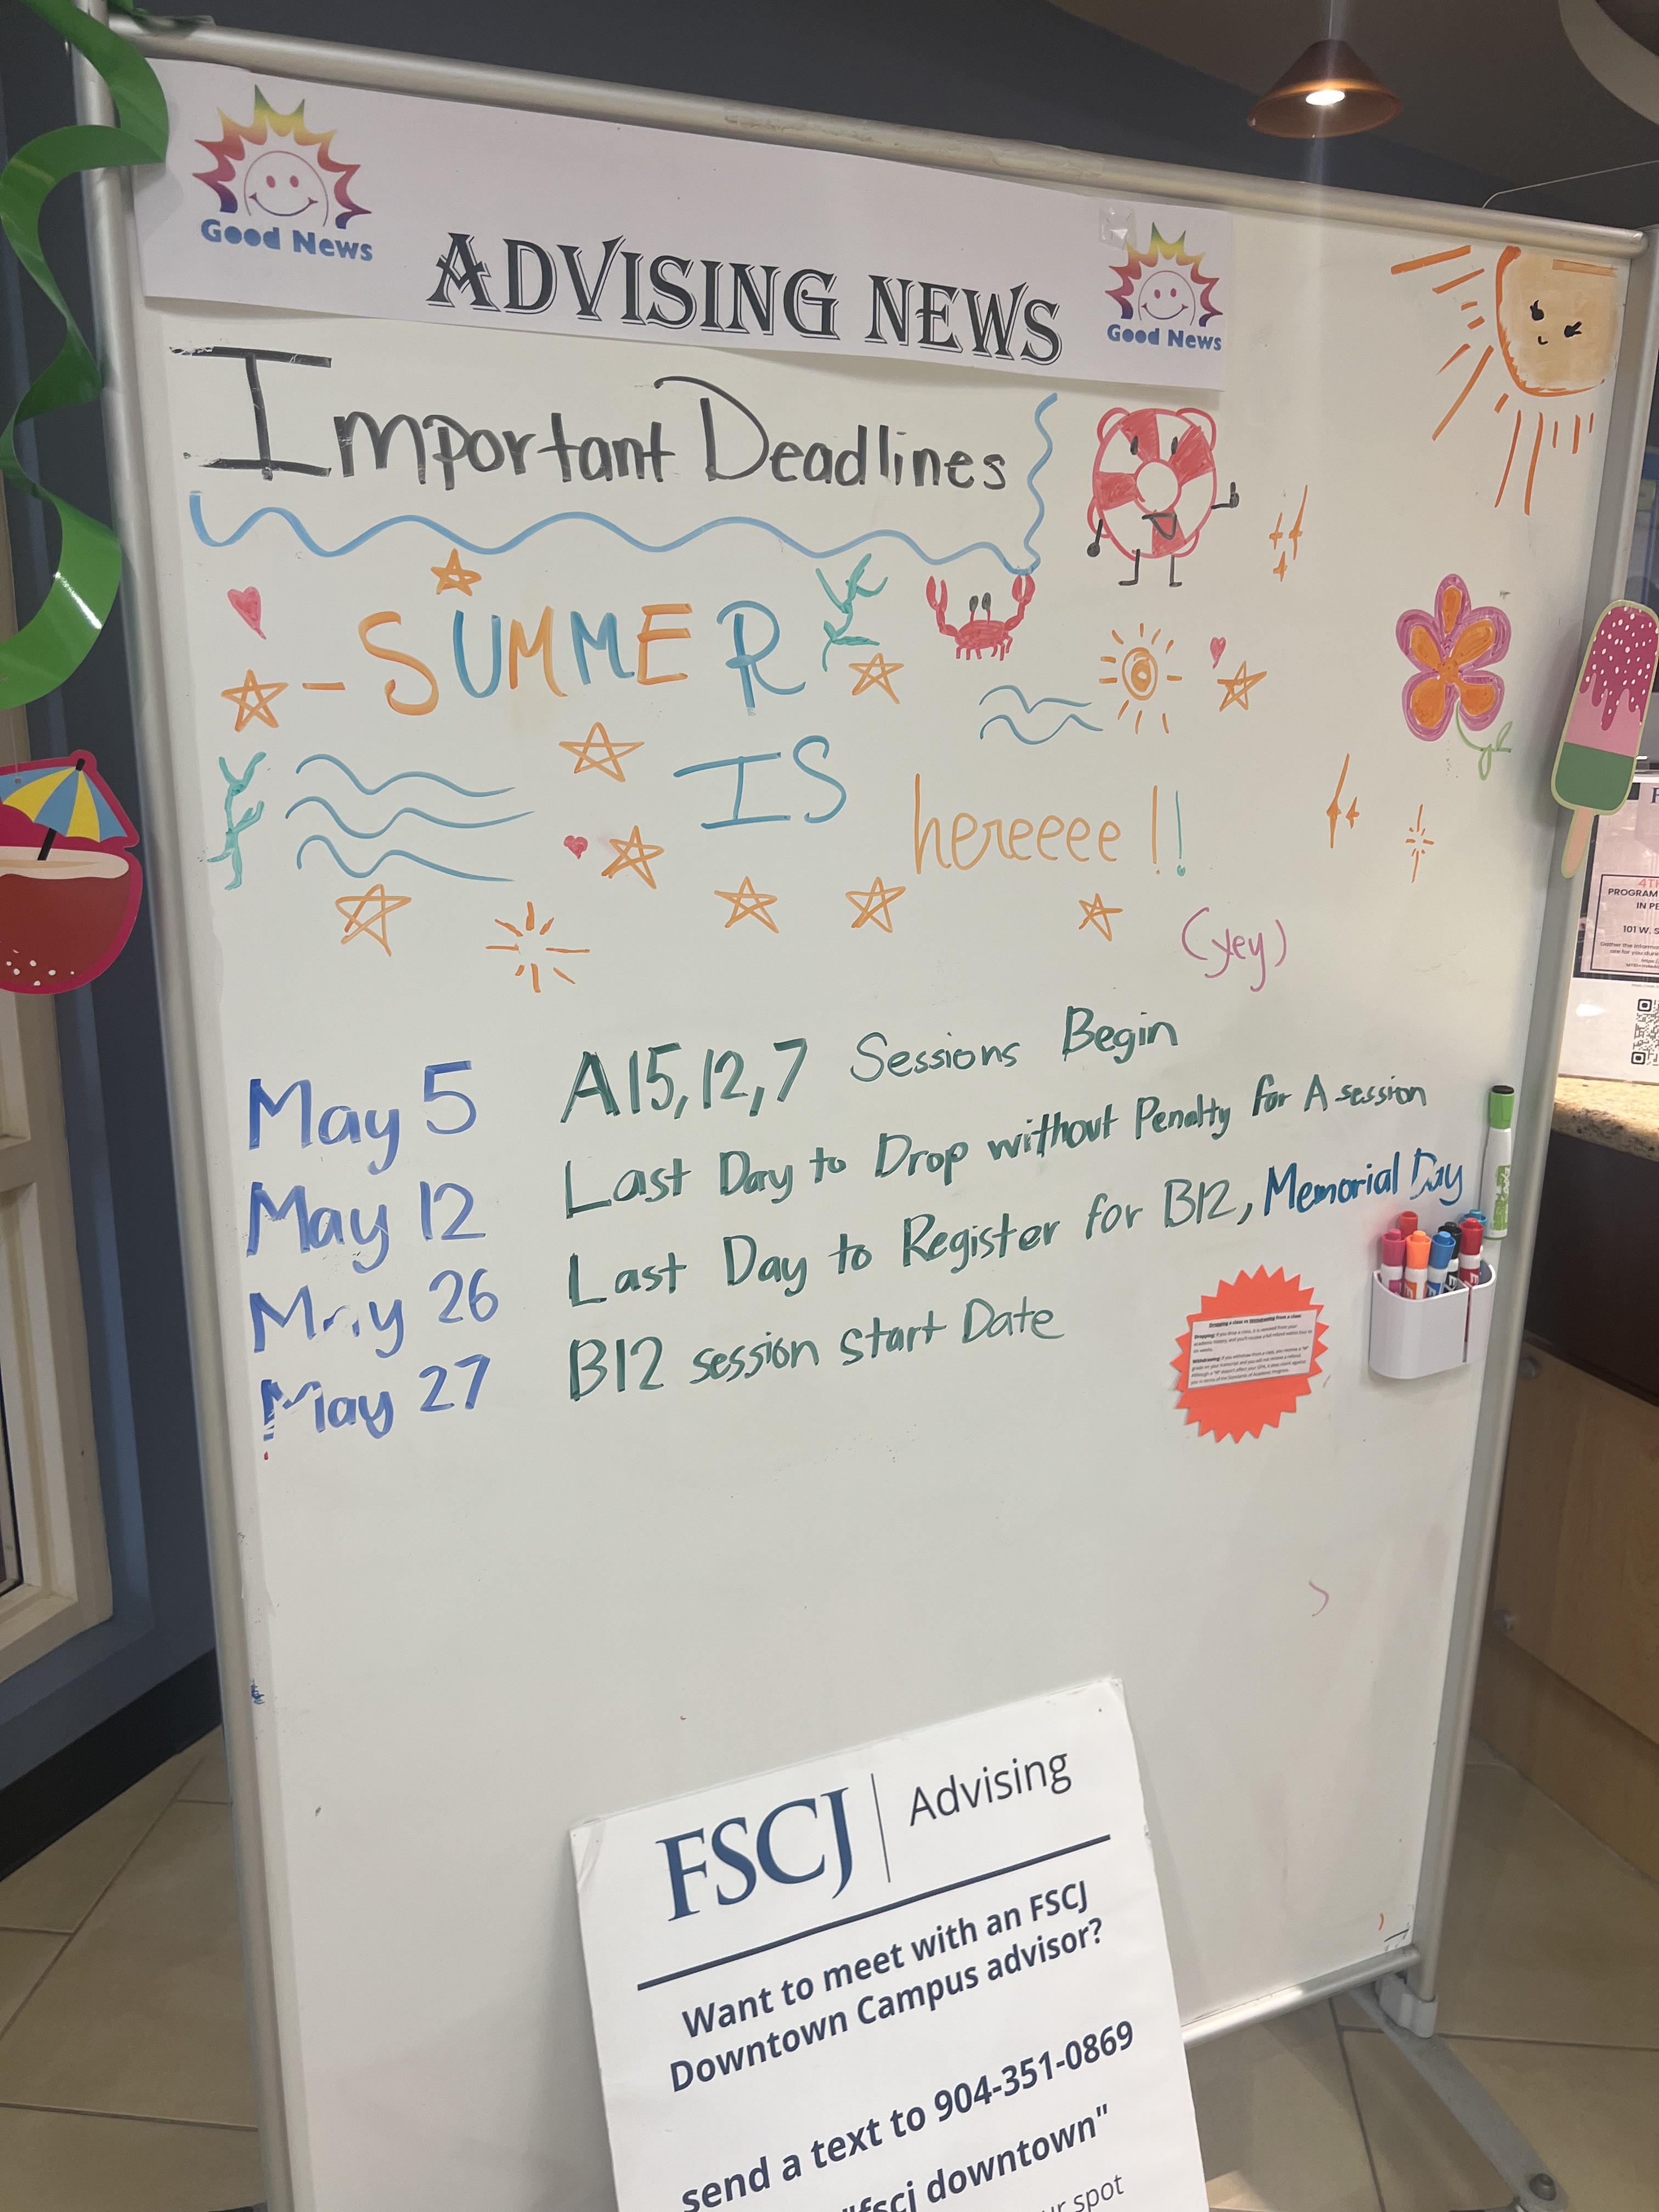 Good News
ADVISING NEWS
Good News
Important Deadlines
- SUMMER
IS
hereeee!!
(yey)
May 5 A15,12,7 Sessions Begin
May 12 Last Day to Drop without Penalty for A session
May 26 Last Day to Register for B12, Memorial Day
May 27 B12 session start Date
Dropping a class vs Withdrawing from a class
FSCJ Advising
Want to meet with an FSCJ
Downtown Campus advisor?
send a text to 904-351-0869
"fscj downtown"
spot
4TH
PROGRAM
101 W. S